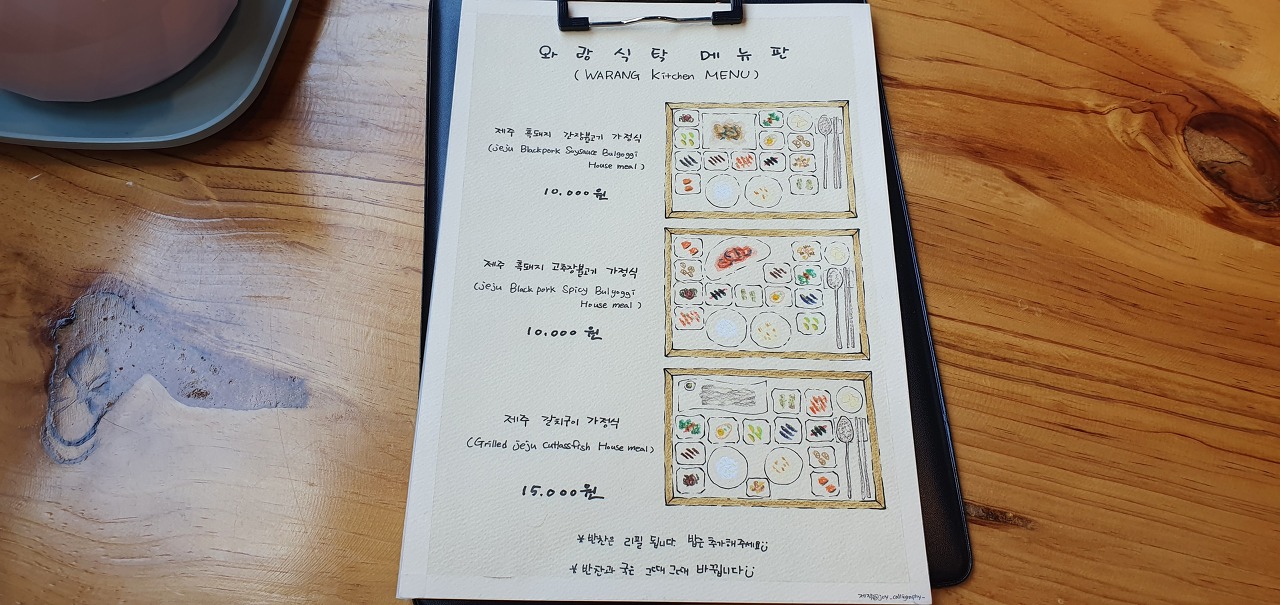 와 랑 식 탁 메 뉴 판
(WARANG Kitchen MENU)
제주 흑돼지 간장불고기 가정식
(Jeju Blackpork Soysauce Bulgoggi
House meal)
10.000원
제주 흑돼지 고추장불고기 가정식
(Jeju Blackpork Spicy Bulgoggi
House meal)
10.000원
제주 갈치구이 가정식
(Grilled Jeju cutlassfish House meal)
15.000원
*반찬은 리필 됩니다. 밥은 추가해주세요
*반찬과 국은 그때 그때 바뀝니다
제작@joy_calligraphy_